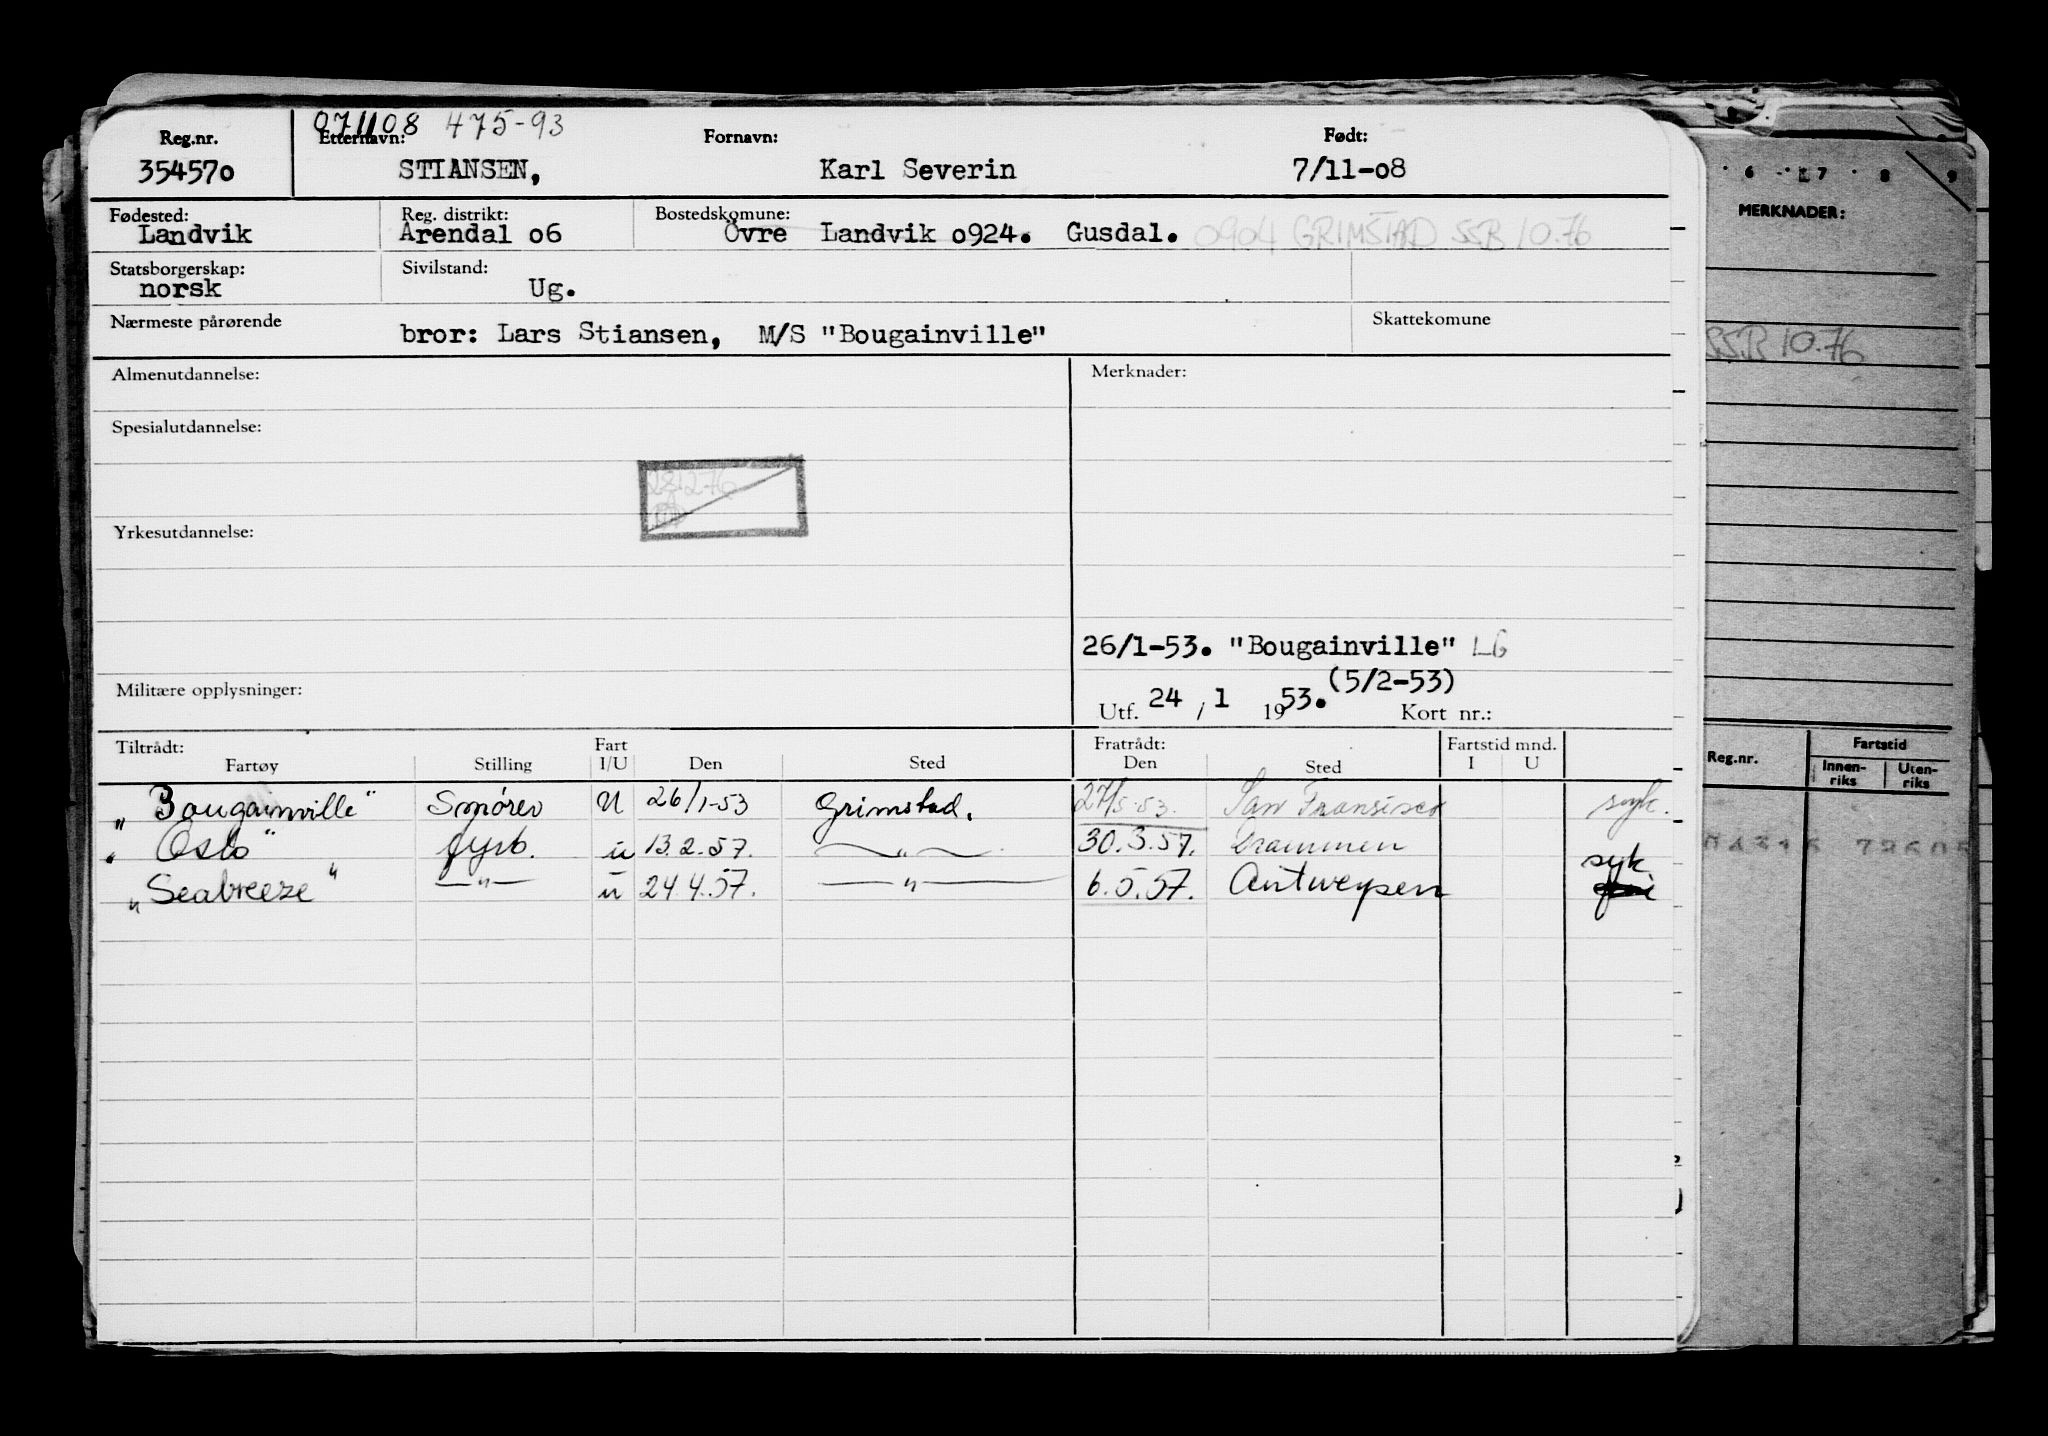 071108 475-93
Reg.nr. Etternavn: Fornavn: Født:
354570 STIANSEN, Karl Severin 7/11-08
Fødested: Reg. distrikt: Bostedskomune:
Landvik Arendal 06 Övre Landvik 0924. Gusdal. 0904 GRIMSTAD SSB 10.76
Statsborgerskap: Sivilstand:
norsk Ug.
Nærmeste pårørende Skattekomune
bror: Lars Stiansen, M/S "Bougainville"
Almenutdannelse: Merknader:
Spesialutdannelse:
Yrkesutdannelse:
26/1-53. "Bougainville" LG
(5/2-53)
Militære opplysninger:
Utf. 24 / 1 1953. Kort nr.:
Tiltrådt: Fart Fratrådt: Fartstid mnd.
Fartøy Stilling I/U Den Sted Den Sted I U
"Bougainville" Smörer U 26/1-53 Grimstad. 27/5-53. San Fransisco syk.
"Oslo" fyrb. u 13.2.57. —"— 30.3.57. Drammen
"Seabreeze" —"— u 24.4.57. —"— 6.5.57. Antwerpen syk
6 7 8 9
MERKNADER:
SSB 10.76
Reg.nr. Fartstid
Innen-riks Uten-riks